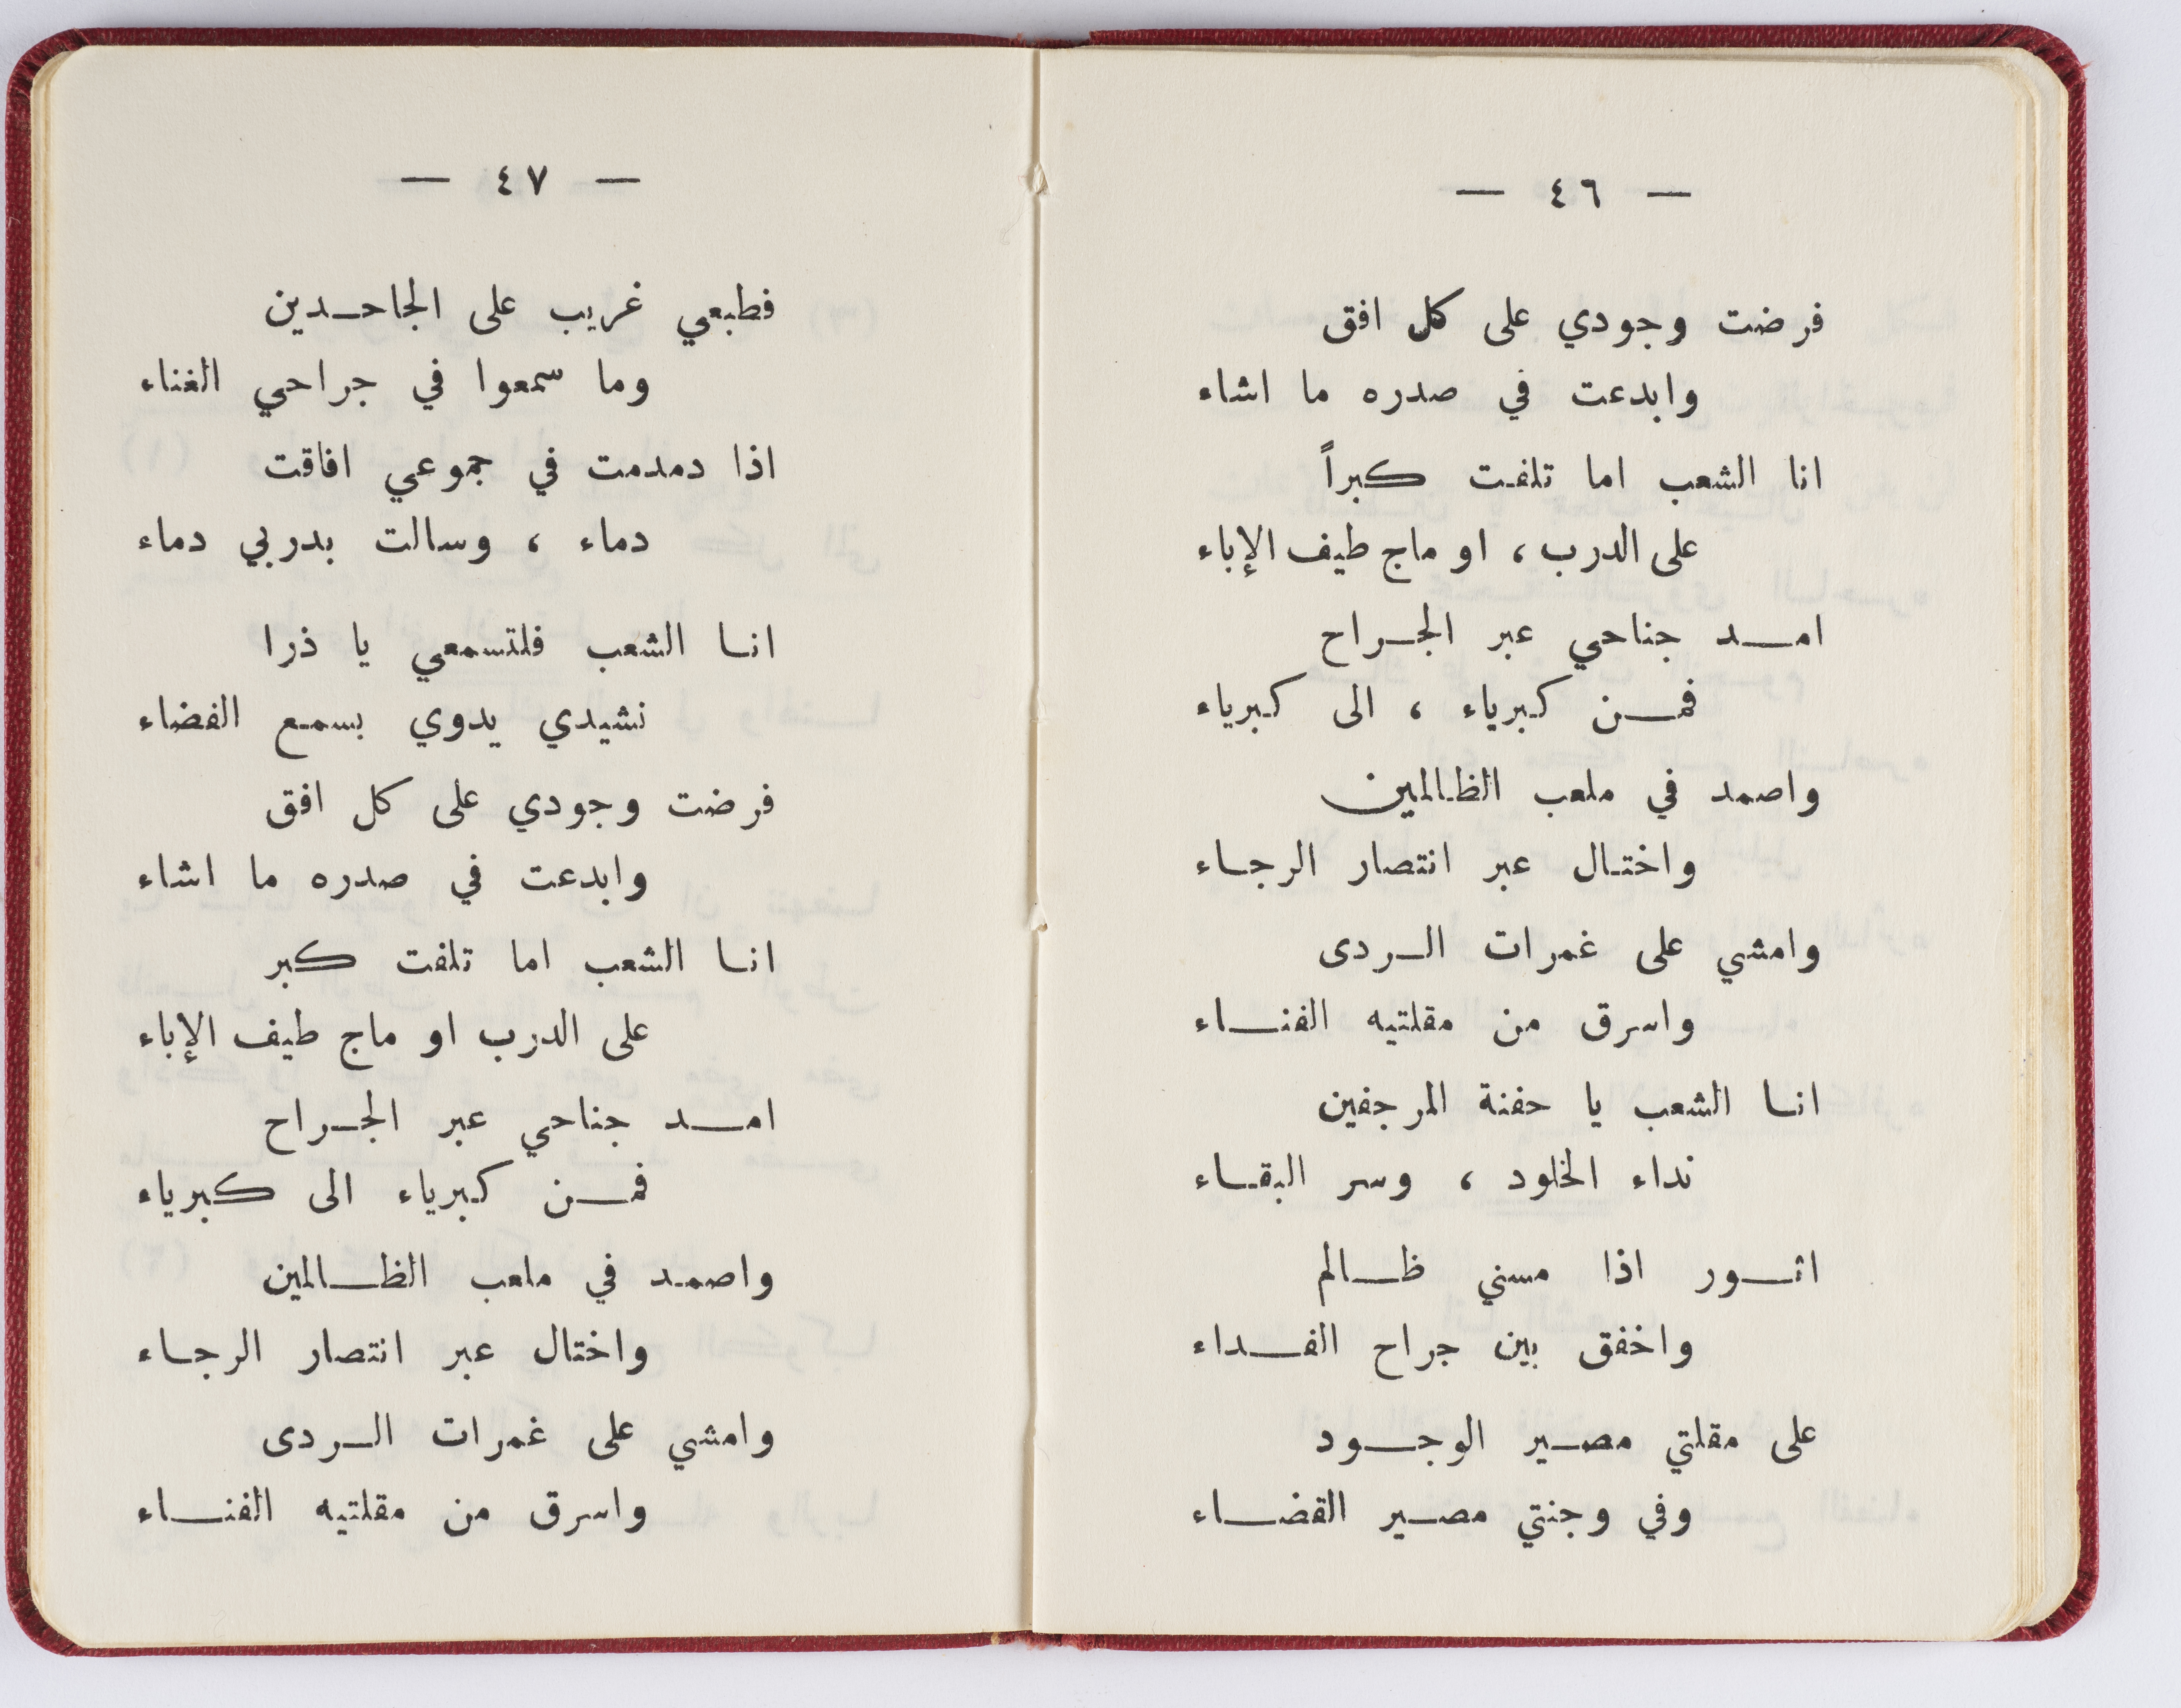 — ٤٦ —
فرضت وجودي على كل افق
وابدعت في صدره ما اشاء
انا الشعب اما تلفت كبراً
على الدرب ، او ماج طيف الإباء
امـــد جناحي عبر الجـراح
فمـــن كبرياء ، الى كبرياء
واصمد في ملعب الظالمين
واختـال عبر انتصار الرجـاء
وامشي على غمرات الـردى
واسرق من مقلتيه الفنـــاء
انـا الشعب يا حفنة المرجفين
نداء الخلود ، وسر البقـاء
اثـــور اذا مسني ظـــالم
واخفق بين جراح الفـــداء
على مقلتي مصـير الوجـــود
وفي وجنتي مصـير القضـــاء
— ٤٧ —
فطبعي غريب على الجاحـدين
وما سمعوا في جراحي الغناء
اذا دمدمت في جموعي افاقت
دماء ، وسالت بدربي دماء
انـا الشعب فلتسمعي يا ذرا
نشيدي يدوي بسمـع الفضاء
فرضت وجودي على كل افق
وابدعت في صدره ما اشاء
انـا الشعب اما تلفت كبر
على الدرب او ماج طيف الإباء
امـــد جناحي عبر الجـراح
فمـــن كبرياء الى كبرياء
واصمـد في ملعب الظـــالمين
واختال عبر انتصار الرجـاء
وامشي على غمرات الـردى
واسرق من مقلتيه الفنـــاء